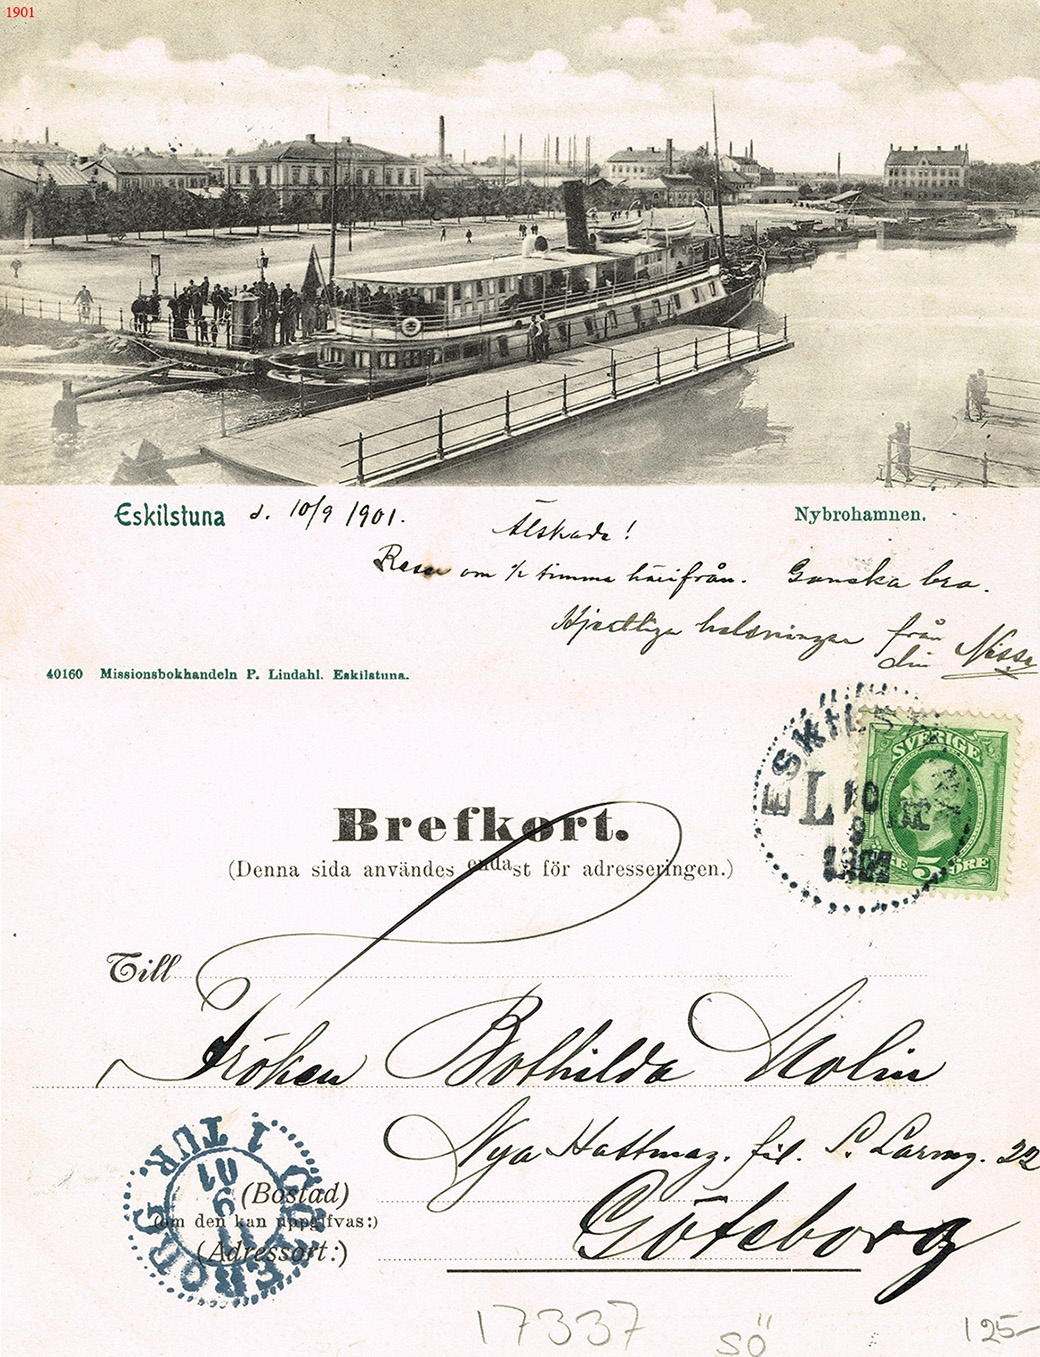 1901
Eskilstuna d. 10/9 1901.
Nybrohamnen.
Älskade!
Reser om ½ timma härifrån. Ganska bra.
Hjertliga helsningar från
din Nisse
40160 Missionsbokhandeln P. Lindahl. Eskilstuna.
ESKILST
L 10
9
1901
SVERIGE
ÖRE 5 ÖRE
Brefkort.
(Denna sida användes endast för adresseringen.)
Till
Fröken Bothilda Molin
Nya Hattmag. fil. S. Larmg. 22
(Bostad)
(om den kan uppgifvas:)
Göteborg
(Adressort:)
GÖTEBORG
1 TUR.
9
01
17337
SÖ
125-